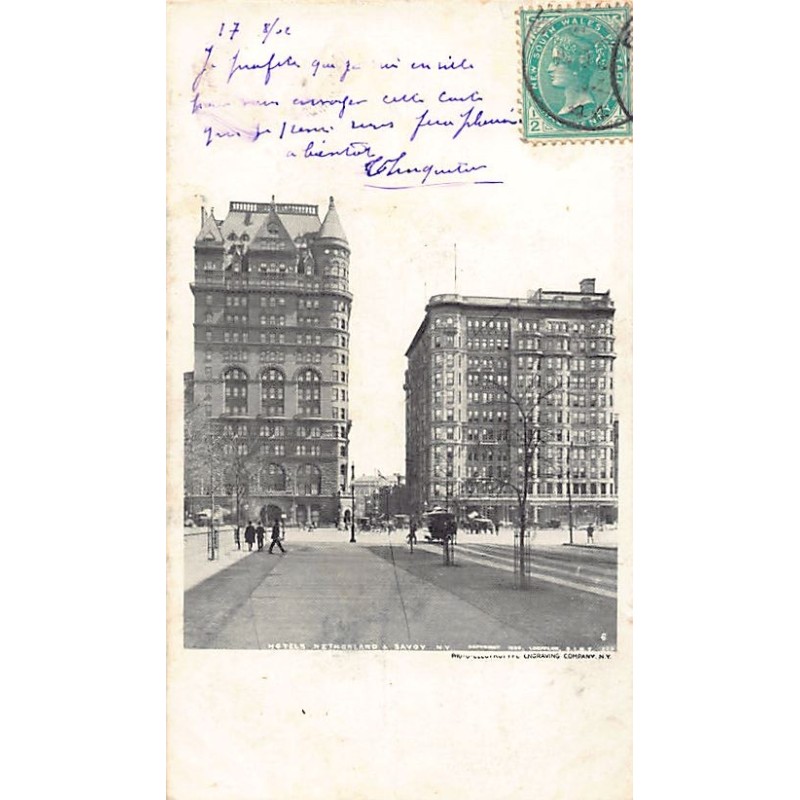 17
Je profite que je suis en ville
pour vous envoyer cette carte
que je pense vous fera plaisir
a bientôt
NEW SOUTH WALES POSTAGE
HOTELS NETHERLAND & SAVOY N.Y.
COPYRIGHT
ENGRAVING COMPANY, N.Y.